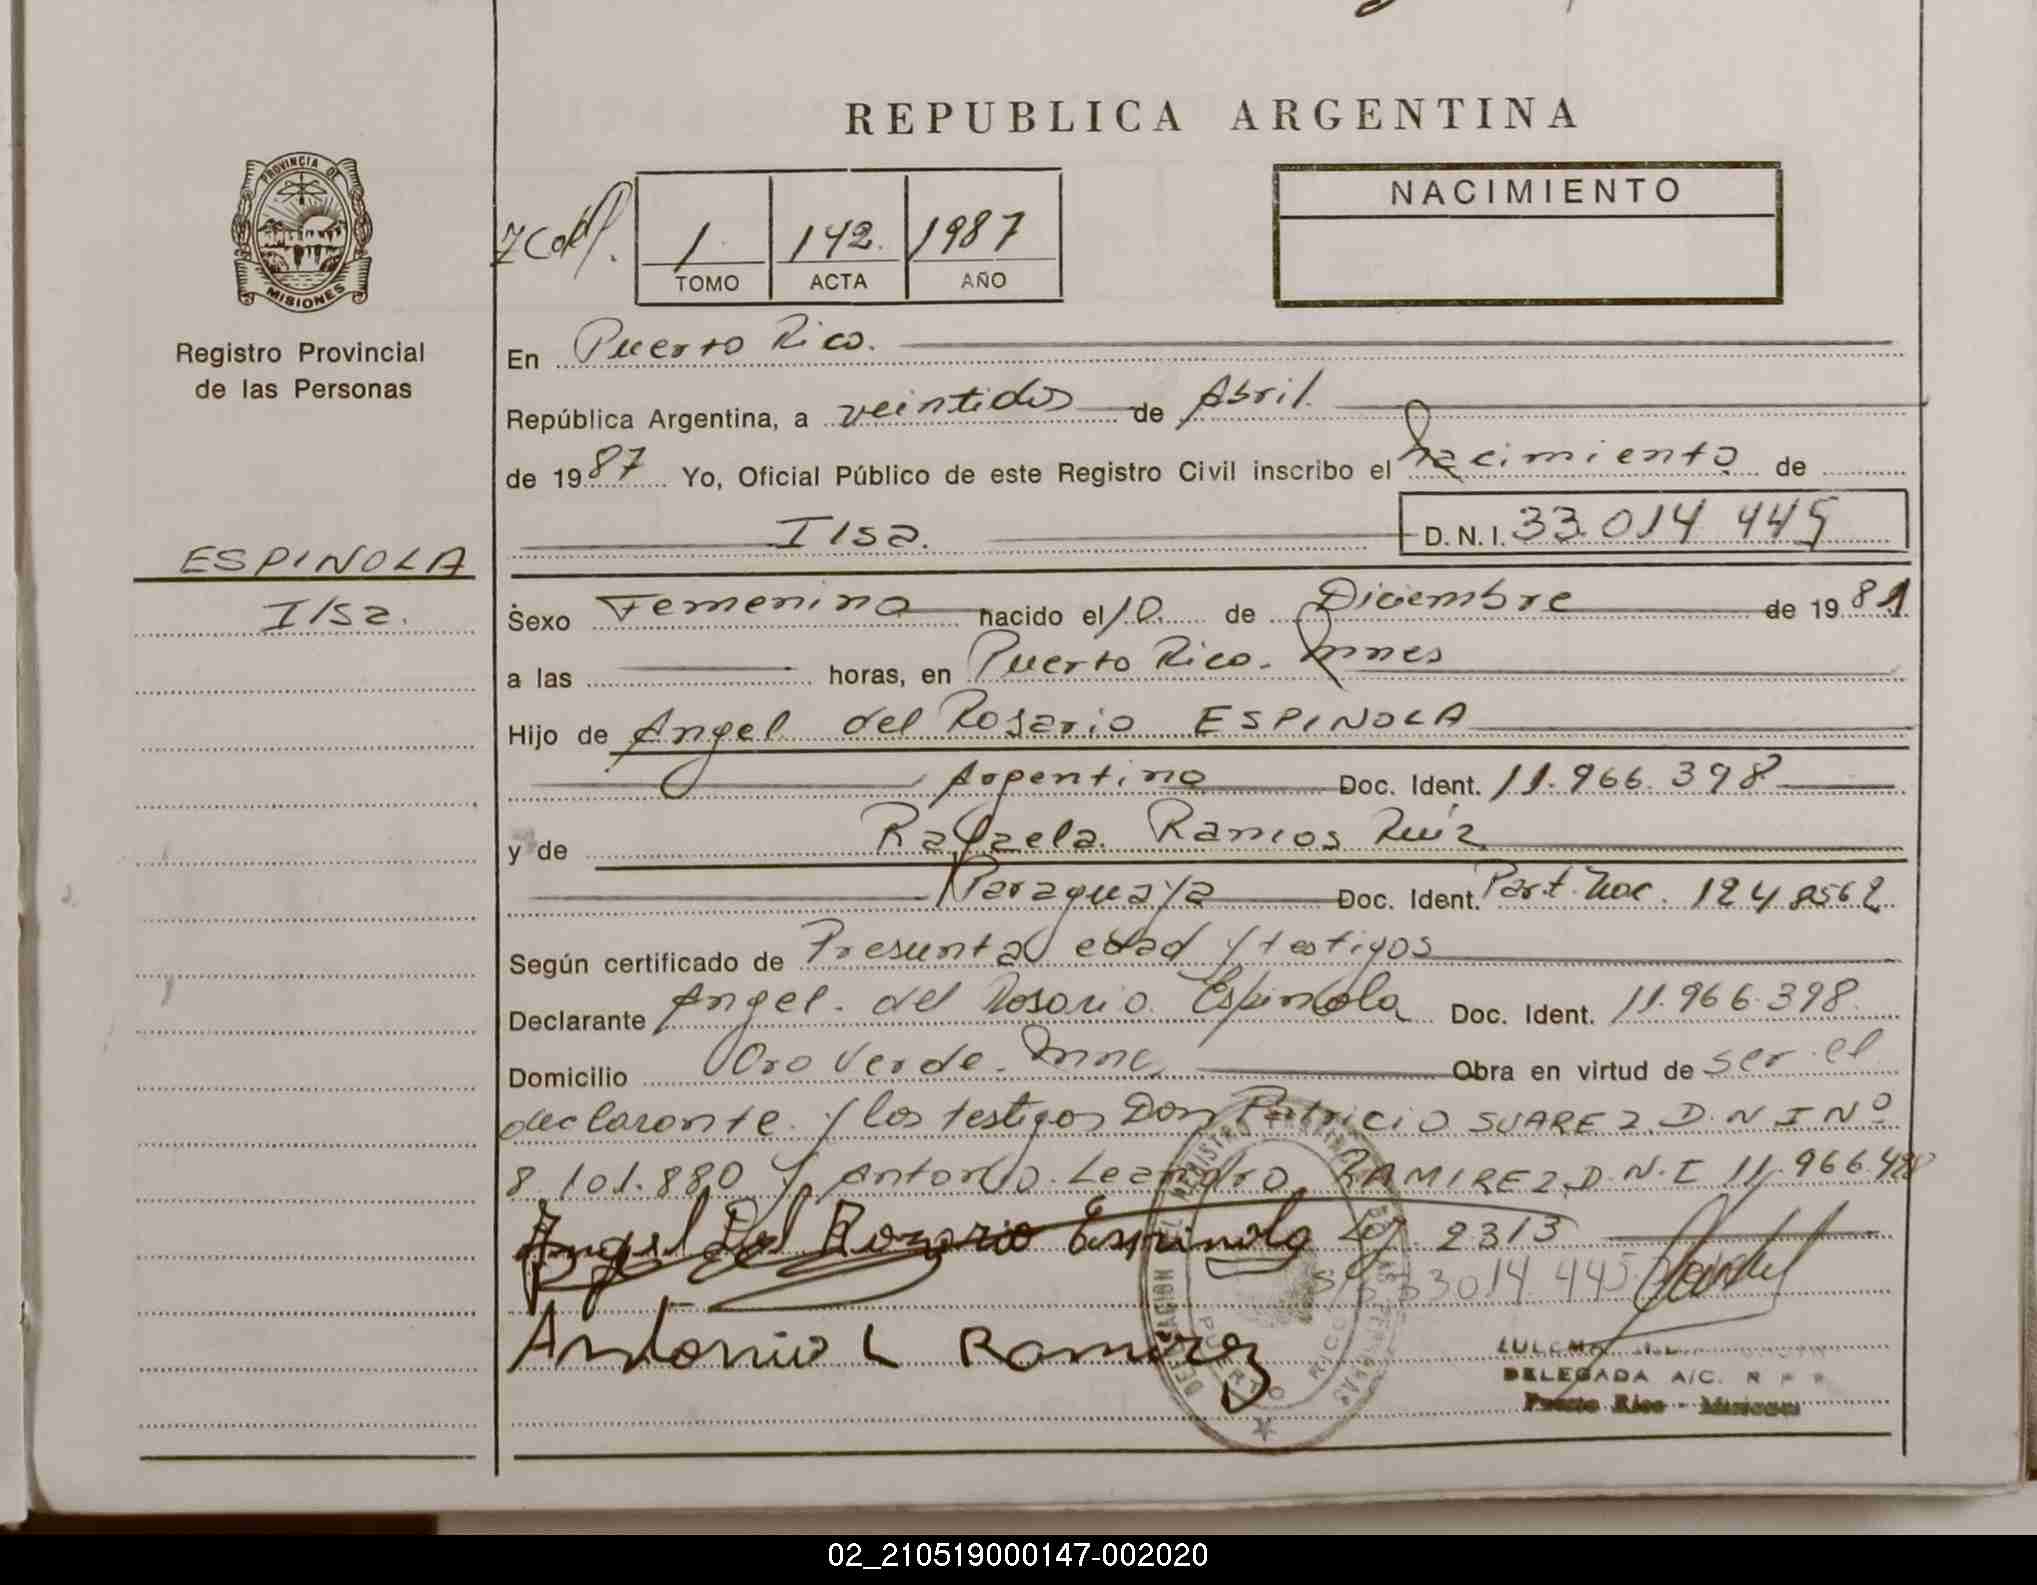 REPUBLICA ARGENTINA
PROVINCIA DE
MISIONES
Registro Provincial
de las Personas
1 142. 1987
TOMO ACTA AÑO
NACIMIENTO
En Puerto Rico.
República Argentina, a veintidos de Abril
de 1987 Yo, Oficial Público de este Registro Civil inscribo el nacimiento de
Ilsa. D. N. I. 33.014 445
ESPINOLA
Ilsa.
Sexo Femenino nacido el 10. de Diciembre de 1981
a las horas, en Puerto Rico. Mnes
Hijo de Angel del Rosario ESPINOLA
Argentino Doc. Ident. 11.966.398
y de Rafaela Ramos Ruíz
Paraguaya Doc. Ident. Part. Nac. 124.8562
Según certificado de Presunta edad y testigos
Declarante Angel. del Rosario Espinola Doc. Ident. 11.966.398
Domicilio Oro Verde. Mnes Obra en virtud de ser el
declarante y los testigos Don Patricio SUAREZ D.N I Nº
8.101.880 y Antonio Leandro RAMIREZ D.N.I 11.966.428
Angel Del Rozario Espinola Ley 2313
33014.445
Antonio L Ramirez
DELEGADA A/C. R P P
Puerto Rico - Misiones
PUERTO RICO
02_210519000147-002020